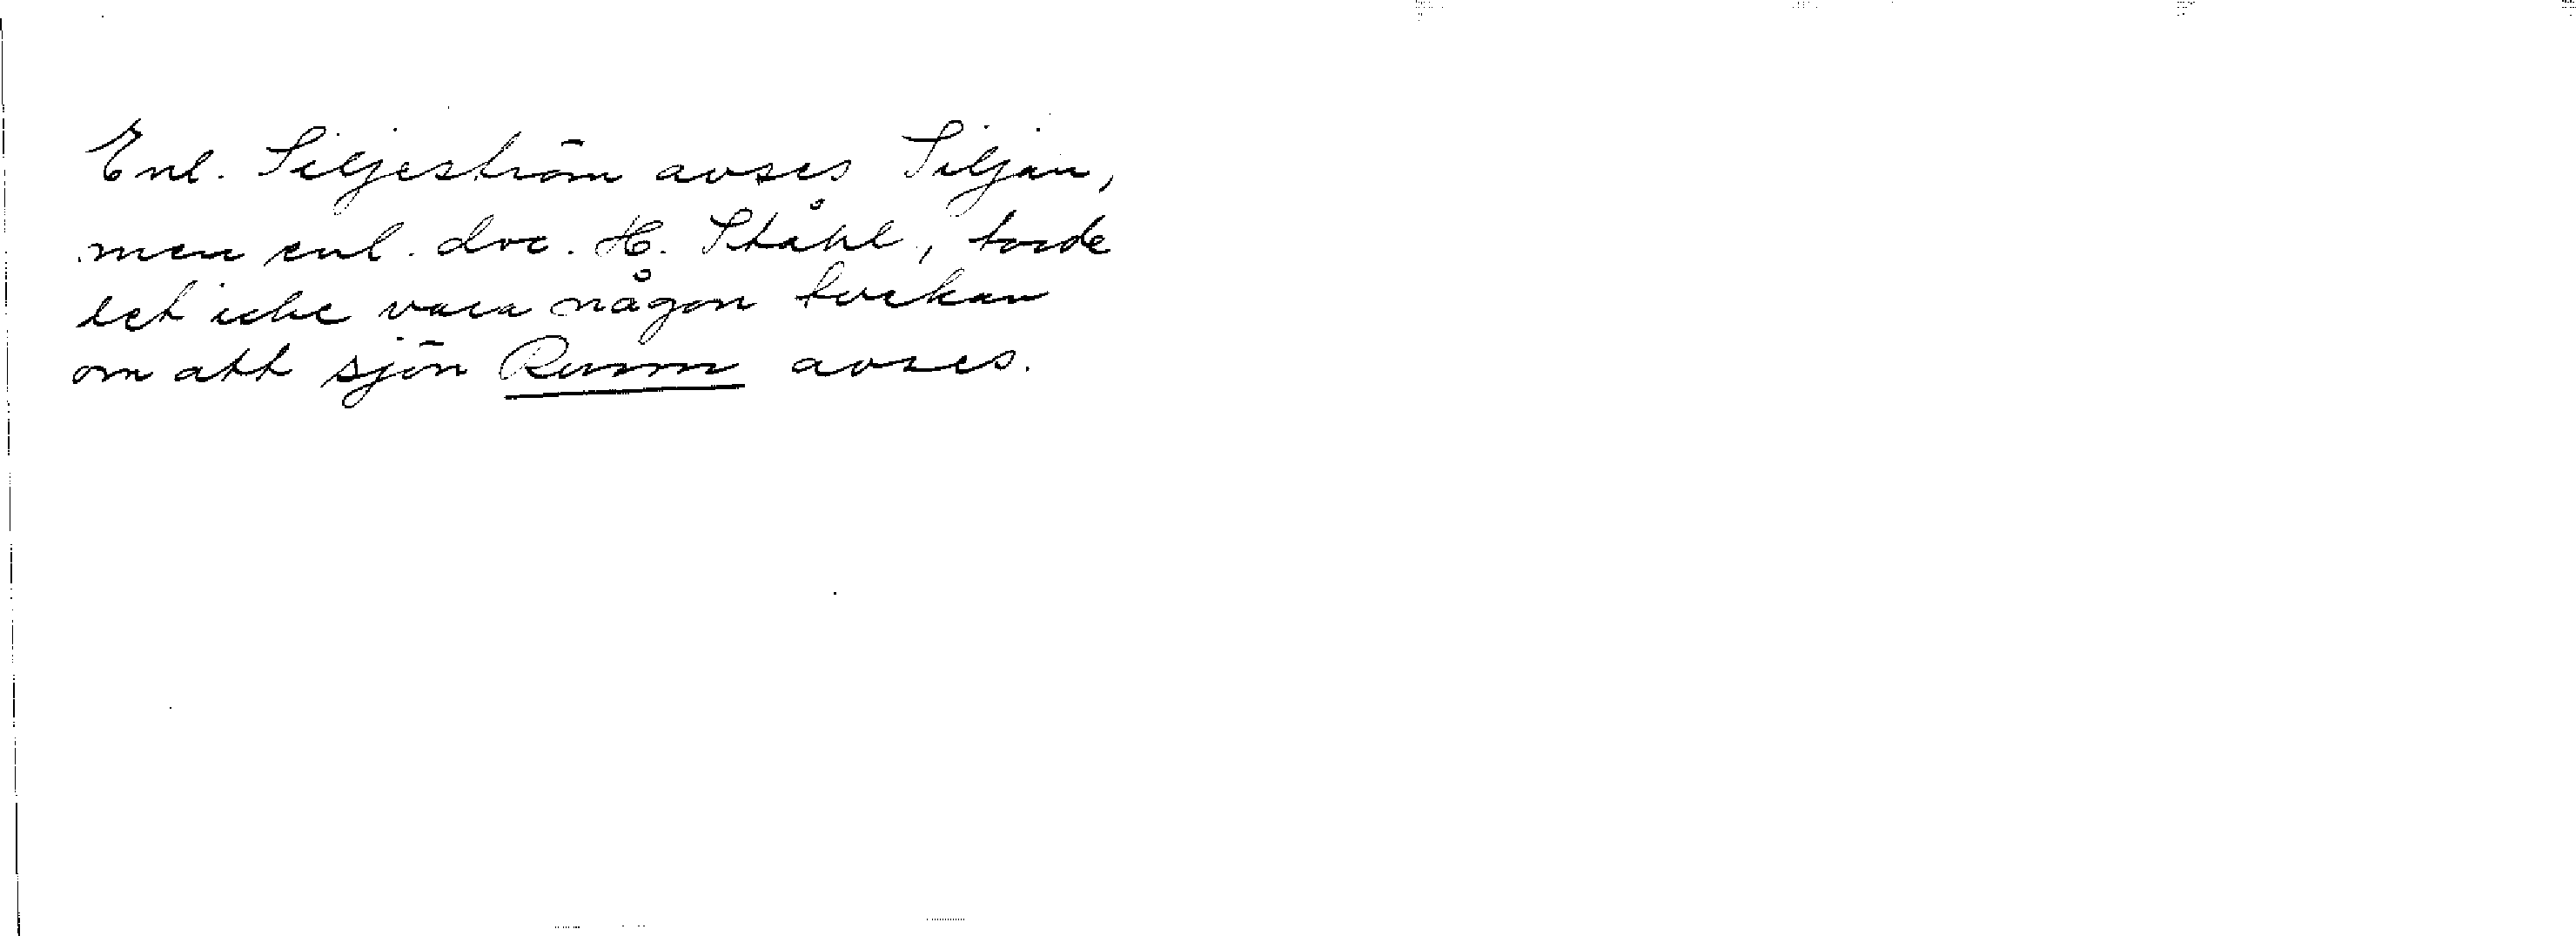 Enl. Siljeström avses Siljan,
men enl. doc. H. Ståhl, torde
det icke vara någon tvekan
om att sjön Runn avses.